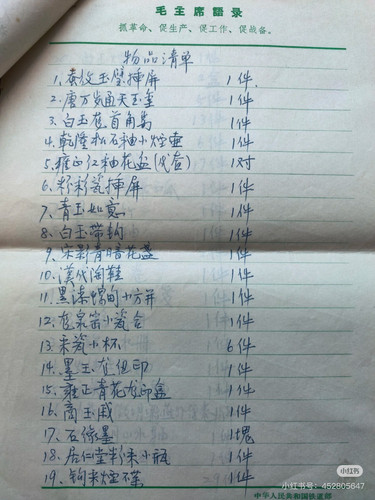 毛主席語录
抓革命、促生产、促工作、促战备。
物品清单
1、蚕纹玉璧插屏 1件
2、唐 1件
3、白玉龙首角器 1件
4、乾隆松石釉小烟壶 1件
5、雍正红釉花盆(代套) 1对
6、粉彩瓷插屏 1件
7、青玉如意 1件
8、白玉带钩 1件
9、宋影青暗花盏 1件
10、漢代陶鞋 1件
11、黑漆螺钿小方 1件
12、龙泉窑小瓷盒 1件
13、来瓷小杯 6件
14、墨玉龙纽印 1件
15、雍正青花龙印盒 1件
16、商玉戚 1件
17、石缘墨 1塊
18、居仁堂彩小瓶 1件
19、钧 1件
中华人民共和国铁道部
小红书
小红书号：452805647